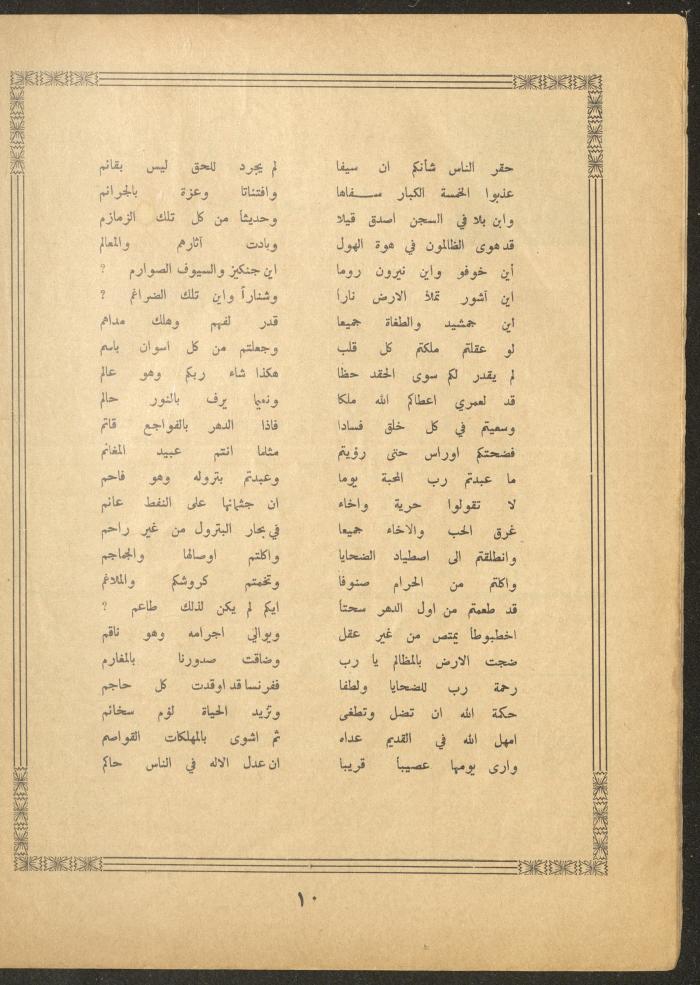 حقر الناس شأنكم ان سيفا لم يجرد للحق ليس بقائم
عذبوا الخمسة الكبار سفاها وافتتانا وعزة بالجرائم
وابن بلا في السجن اصدق قيلا وحديثاً من كل تلك الزمازم
قد هوى الظالمون في هوة الهول وبادت آثارهم والمعالم
أين خوفو واين نيرون روما اين جنكيز والسيوف الصوارم ؟
اين آشور تملأ الارض ناراً وشناراً واين تلك الضراغم ؟
اين جمشيد والطغاة جميعا قدر لفهم وهلك مداهم
لو عقلتم ملكتم كل قلب وجعلتم من كل اسوان باسم
لم يقدر لكم سوى الحقد حظا هكذا شاء ربكم وهو عالم
قد لعمري اعطاكم الله ملكا ونعيما يرف بالنور حالم
وسعيتم في كل خلق فسادا فاذا الدهر بالفواجع قاتم
فضحتكم اوراس حتى رؤيتم مثلما انتم عبيد المغانم
ما عبدتم رب المحبة يوما وعبدتم بتروله وهو فاحم
لا تقولوا حرية واخاء ان جثمانها على النفط عائم
غرق الحب والاخاء جميعا في بحار البترول من غير راحم
وانطلقتم الى اصطياد الضحايا واكلتم اوصالها والجماجم
واكلتم من الحرام صنوفا وتخمتم كروشكم والملاغم
قد طعمتم من اول الدهر سحتاً ايكم لم يكن لذلك طاعم ؟
اخطبوطاً يمتص من غير عقل ويوالي اجرامه وهو ناقم
ضجت الارض بالمظالم يا رب وضاقت صدورنا بالمغارم
رحمة رب للضحايا ولطفا ففرنسا قد اوقدت كل حاجم
حكمة الله ان تضل وتطغى وتزيد الحياة لؤم سخائم
امهل الله في القديم عداه ثم اشوى بالمهلكات القواصم
وارى يومها عصيباً قريبا ان عدل الاله في الناس حاكم
١٠